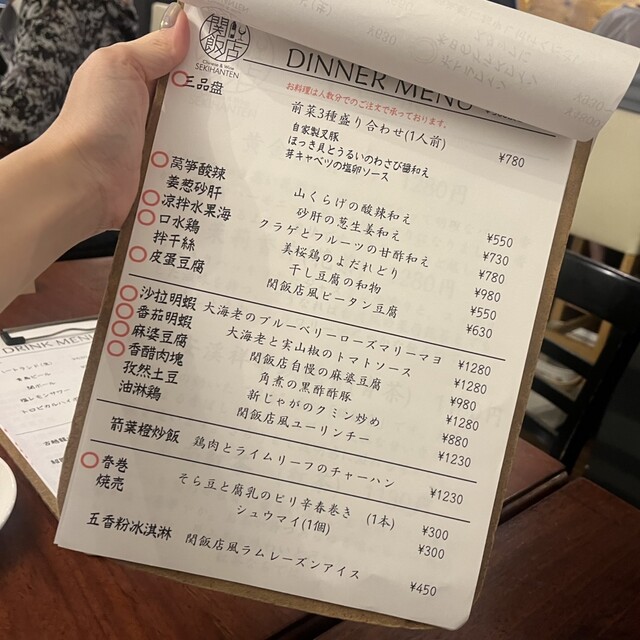 関飯店
Chinese & Wine
SEKIHANTEN
DINNER MENU
お料理は人数分でのご注文で承っております。
三品盘 前菜3種盛り合わせ(1人前) ¥780
自家製叉豚
ほっき貝とうるいのわさび醤和え
芽キャベツの塩卵ソース
萵笋酸辣 山くらげの酸辣和え ¥550
姜葱砂肝 砂肝の葱生姜和え ¥730
凉拌水果海 クラゲとフルーツの甘酢和え ¥780
口水鶏 美桜鶏のよだれどり ¥980
拌干絲 干し豆腐の和物 ¥550
皮蛋豆腐 関飯店風ピータン豆腐 ¥630
沙拉明蝦 大海老のブルーベリーローズマリーマヨ ¥1280
番茄明蝦 大海老と実山椒のトマトソース ¥1280
麻婆豆腐 関飯店自慢の麻婆豆腐 ¥980
香醋肉塊 角煮の黒酢酢豚 ¥1280
孜然土豆 新じゃがのクミン炒め ¥880
油淋鶏 関飯店風ユーリンチー ¥1230
箭葉橙炒飯 鶏肉とライムリーフのチャーハン ¥1230
春巻 そら豆と腐乳のピリ辛春巻き (1本) ¥300
焼売 シュウマイ(1個) ¥300
五香粉冰淇淋 関飯店風ラムレーズンアイス ¥450
DRINK MENU